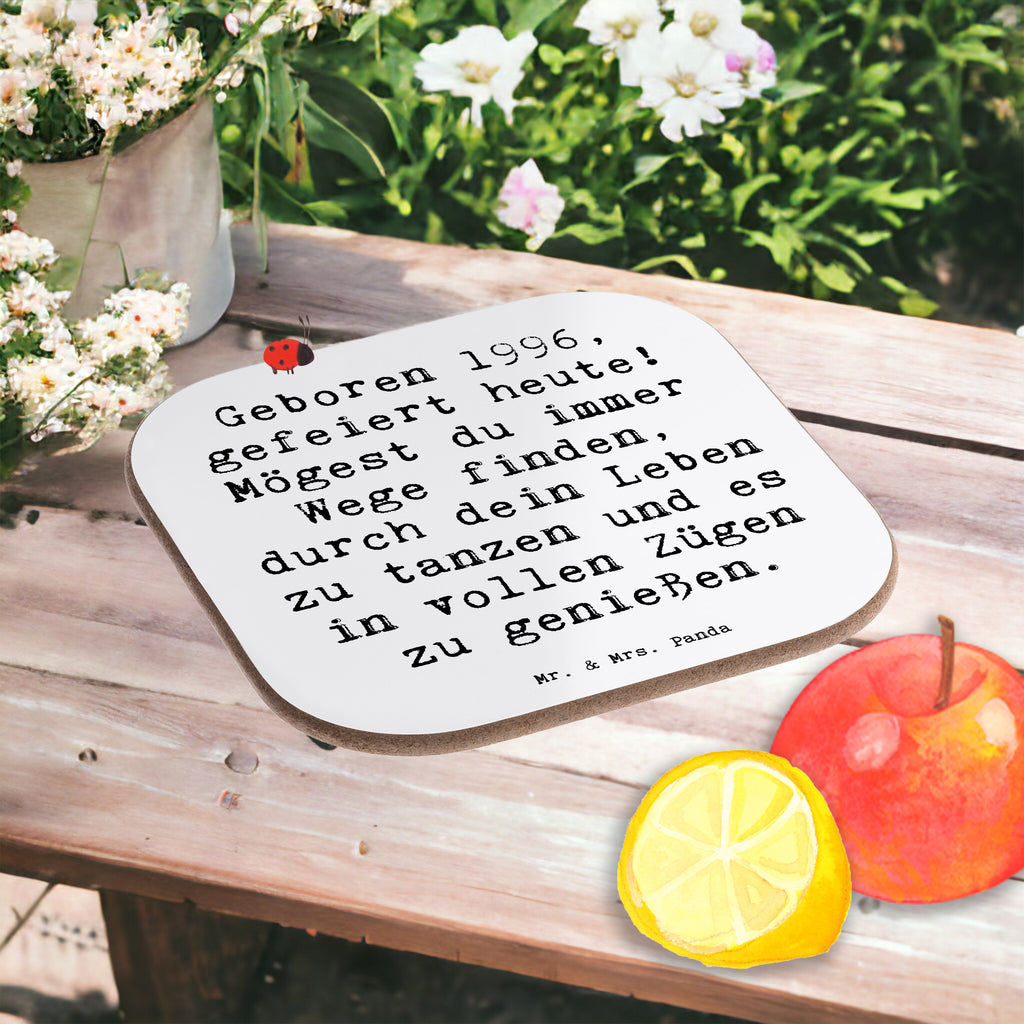 Geboren 1996,
gefeiert heute!
Mögest du immer
Wege finden,
durch dein Leben
zu tanzen und es
in vollen Zügen
zu genießen.
Mr. & Mrs. Panda